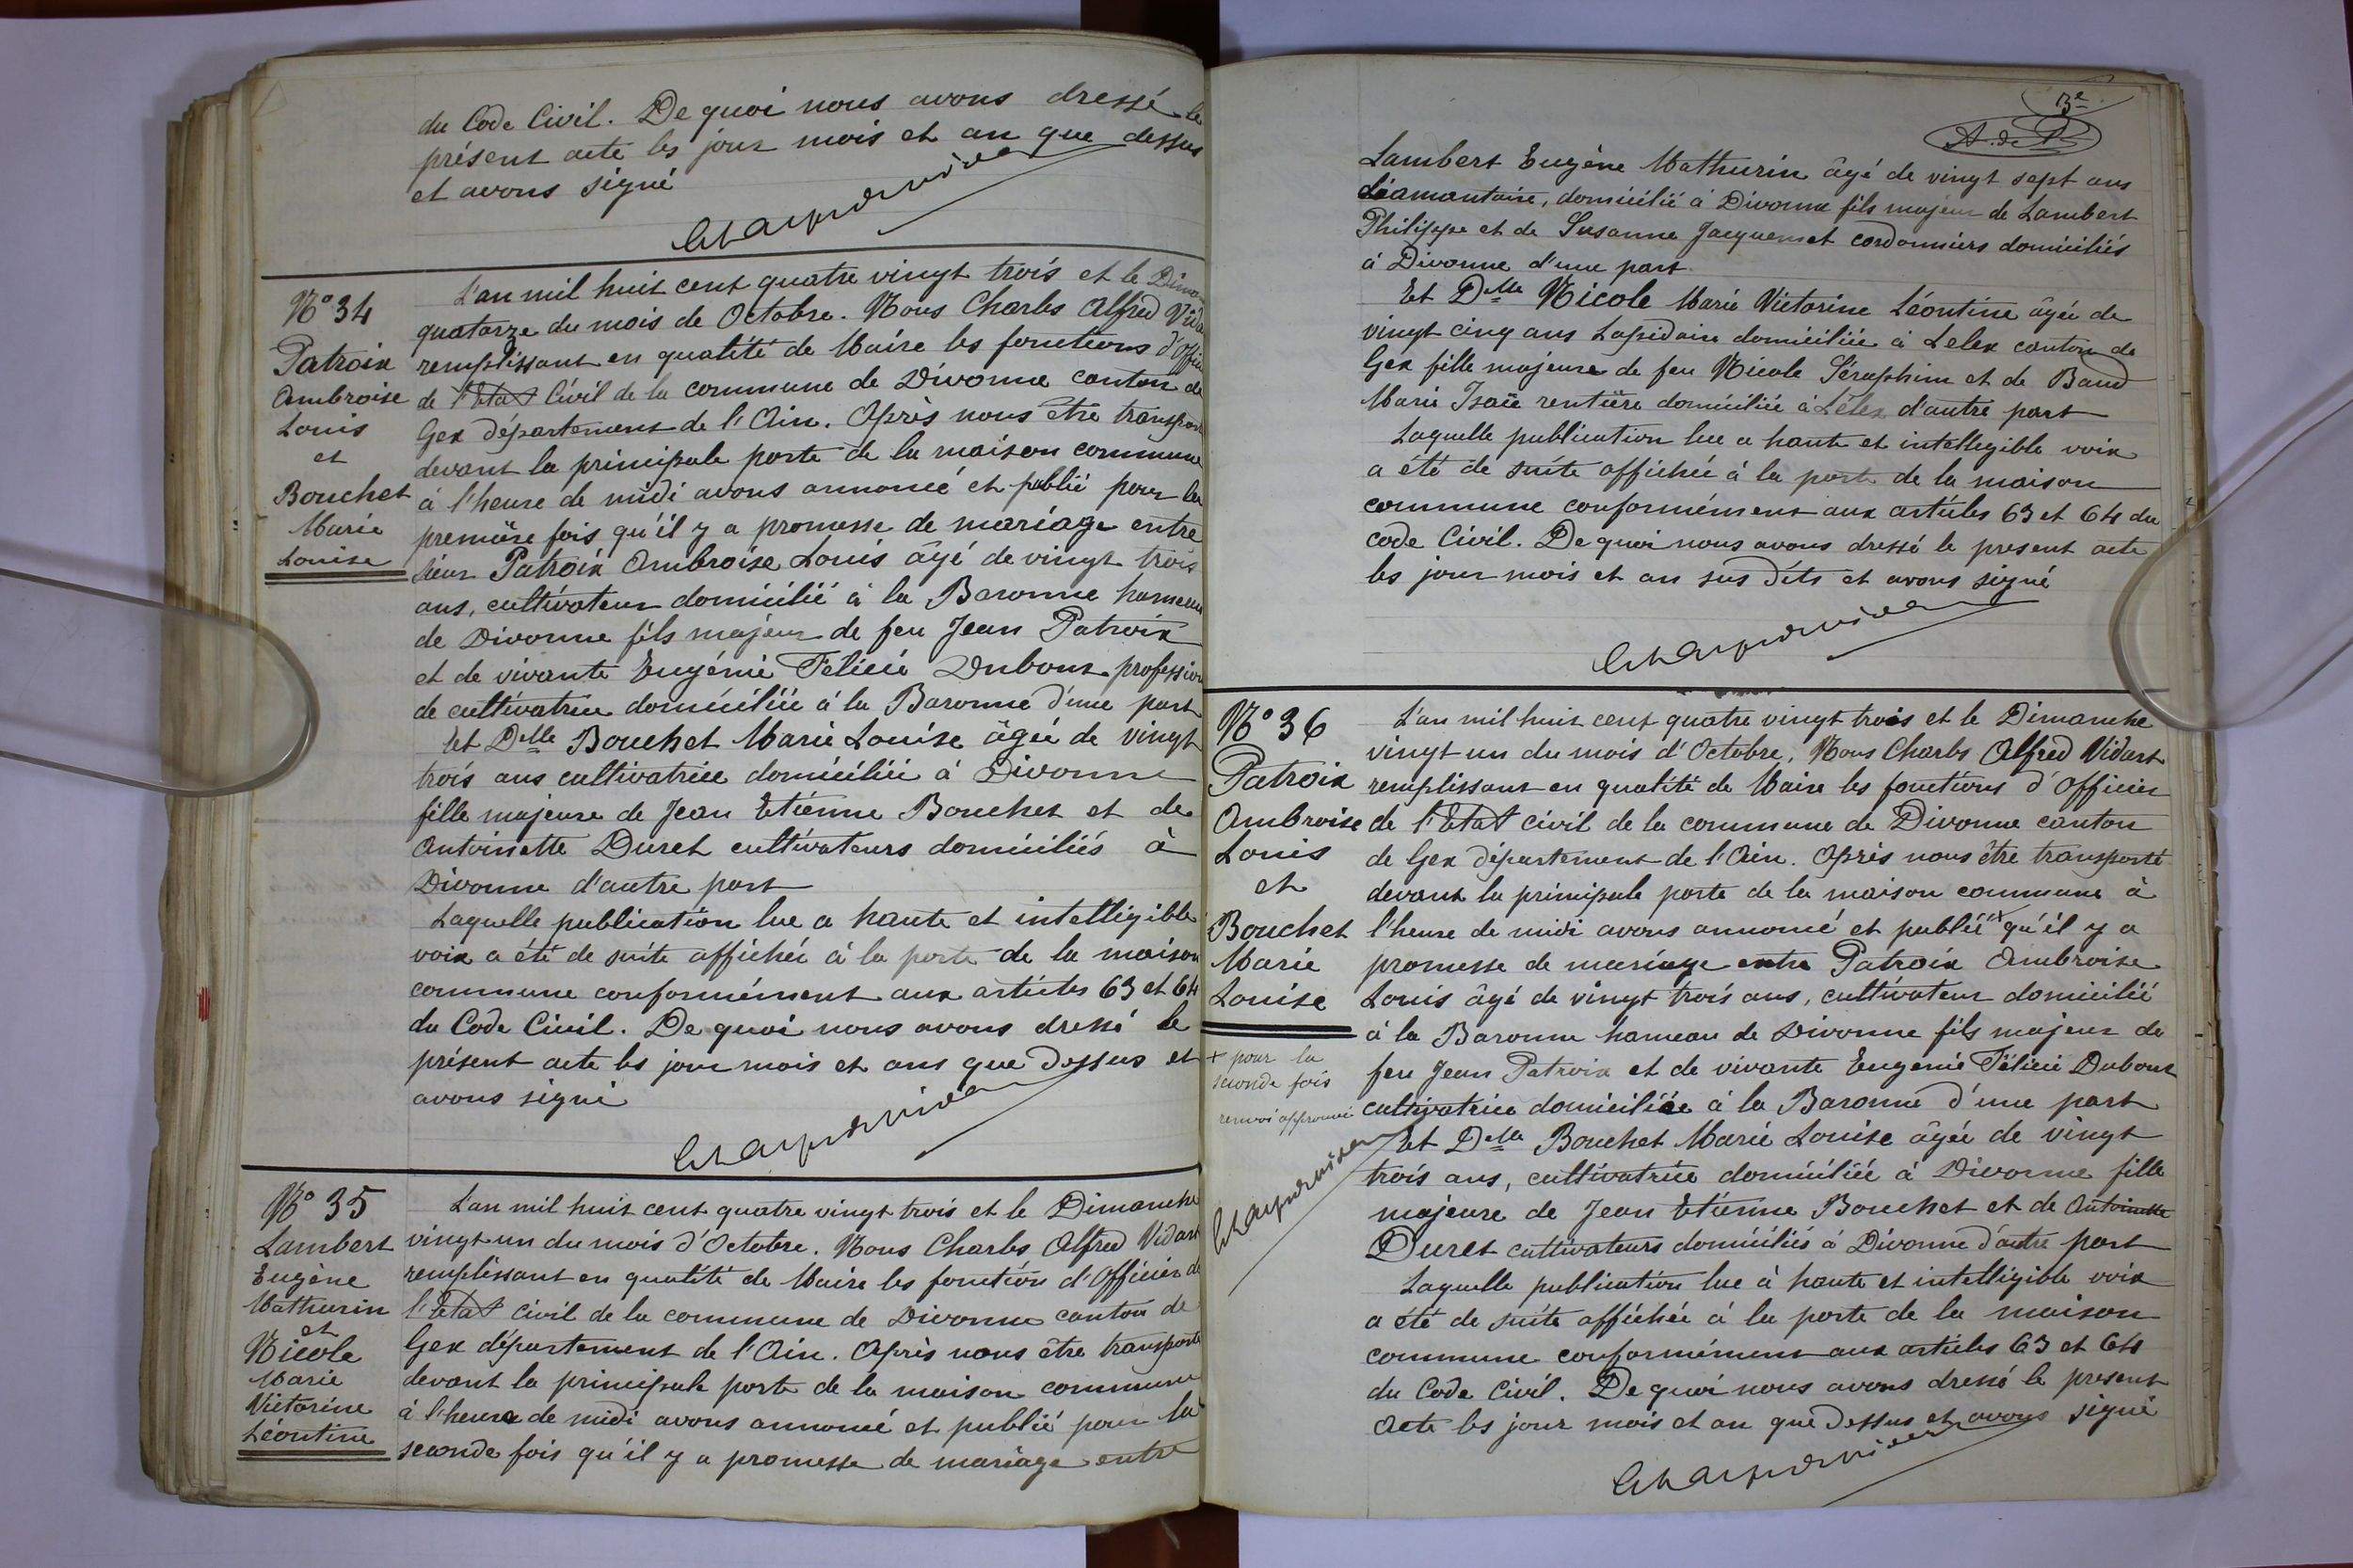 du Code Civil. De quoi nous avons dressé le
présent acte les jour mois et an que dessus
et avons signé
N° 34
Patroix
Ambroise
Louis
et
Bouchet
Marie
Louise
L'an mil huit cent quatre vingt trois et le Diman
quatorze du mois de Octobre. Nous Charles Alfred Vida
remplissant en qualité de Maire les fonctions d'Offici
de l'Etat Civil de la commune de Divonne canton de
Gex département de l'Ain. Après nous être transporté
devant la principale porte de la maison commune
à l'heure de midi avons annoncé et publié pour la
première fois qu'il y a promesse de mariage entre
sieur Patroix Ambroise Louis âgé de vingt trois
ans, cultivateur domicilié à la Baronne hameau
de Divonne fils majeur de feu Jean Patroix
et de vivante Eugénie Félicie Dubout profession
de cultivatrice domiciliée à la Baronne d'une part
Et Delle Bouchet Marie Louise âgée de vingt
trois ans cultivatrice domiciliée à Divonne
fille majeure de Jean Etienne Bouchet et de
Antoinette Duret cultivateurs domiciliés à
Divonne d'autre part
Laquelle publication lue a haute et intelligible
voix a été de suite affichée à la porte de la maison
commune conformément aux articles 63 et 64
du Code Civil. De quoi nous avons dressé le
présent acte les jour mois et ans que dessus et
avons signé
N° 35
Lambert
Eugène
Mathurin
et
Nicole
Marie
Victorine
Léontine
L'an mil huit cent quatre vingt trois et le Dimanche
vingt un du mois d'Octobre. Nous Charles Alfred Vidart
remplissant en qualité de Maire les fonction d'Officier de
l'Etat Civil de la commune de Divonne canton de
Gex département de l'Ain. Après nous être transporté
devant la principale porte de la maison commune
à l'heure de midi avons annoncé et publié pour la
seconde fois qu'il y a promesse de mariage entre
3e
A. de P.
Lambert Eugène Mathurin âgé de vingt sept ans
diamantaire, domicilié à Divonne fils majeur de Lambert
Philippe et de Susanne Jacquemet cordonniers domiciliés
à Divonne d'une part
Et Delle Nicole Marie Victorine Léontine âgée de
vingt cinq ans Lapidaire domiciliée à Lelex canton de
Gex fille majeure de feu Nicole Séraphim et de Baud
Marie Isaïe rentière domiciliée à Lélex d'autre part
Laquelle publication lue a haute et intellegible voix
a été de suite affichée à la porte de la maison
commune conformément aux articles 63 et 64 du
code Civil. De quoi nous avons dressé le present acte
les jour mois et an sus dits et avons signé
N° 36
Patroix
Ambroise
Louis
et
Bouchet
Marie
Louise
+ pour la
seconde fois
renvoi approuvé
L'an mil huit cent quatre vingt trois et le Dimanche
vingt un du mois d'Octobre, Nous Charles Alfred Vidart
remplissant en qualité de Maire les fonctions d'Officier
de l'Etat civil de la commune de Divonne canton
de Gex département de l'Ain. Après nous être transporté
devant la principale porte de la maison commune à
l'heure de midi avons annoncé et publié + qu'il y a
promesse de mariage entre Patroix Ambroise
Louis âgé de vingt trois ans, cultivateur domicilié
à la Baronne hameau de Divonne fils majeur de
feu Jean Patroix et de vivante Eugenie Félicie Dubout
cultivatrice domiciliée à la Baronne d'une part
Et Delle Bouchet Marie Louise âgée de vingt
trois ans, cultivatrice domiciliée à Divonne fille
majeure de Jean Etienne Bouchet et de Antoinette
Duret cultivateurs domiciliés à Divonne d'autre part
Laquelle publication lue à haute et intelligible voix
a été de suite affichée à la porte de la maison
commune conformément aux articles 63 et 64
du Code Civil. De quoi nous avons dressé le present
acte les jour mois et an que dessus et avons signé